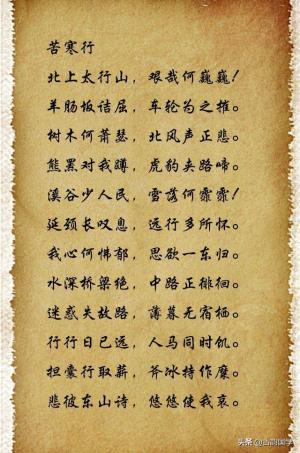 苦寒行
北上太行山，艰哉何巍巍！
羊肠坂诘屈，车轮为之摧。
树木何萧瑟，北风声正悲。
熊罴对我蹲，虎豹夹路啼。
溪谷少人民，雪落何霏霏！
延颈长叹息，远行多所怀。
我心何怫郁，思欲一东归。
水深桥梁绝，中路正徘徊。
迷惑失故路，薄暮无宿栖。
行行日已远，人马同时饥。
担囊行取薪，斧冰持作糜。
悲彼东山诗，悠悠使我哀。
头条@古韵国学